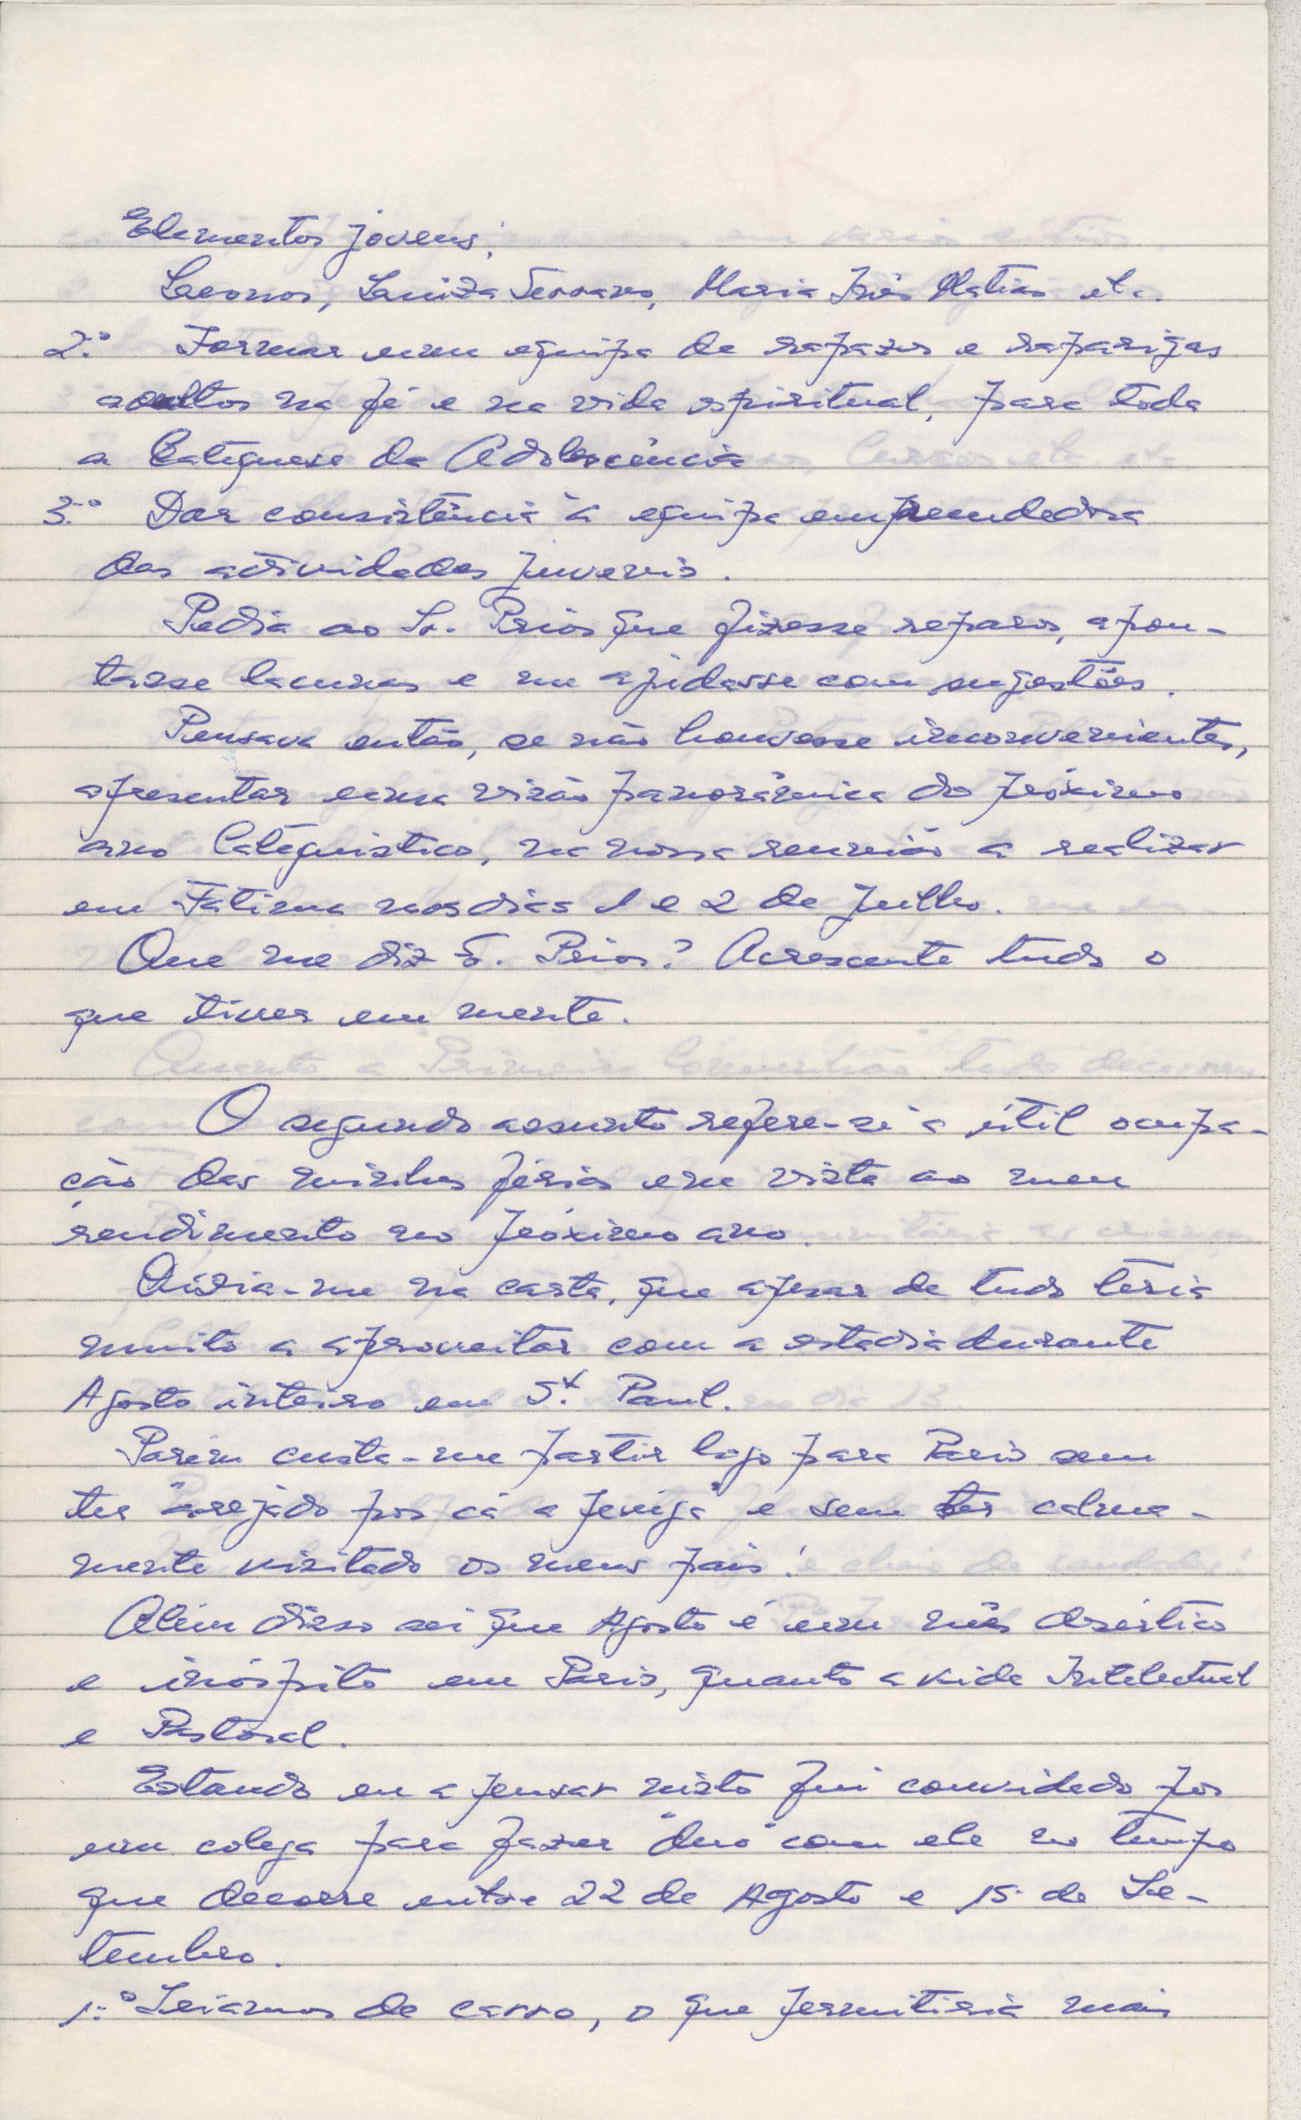 Elementos jovens:
Luiza Serrano, Maria Inês Matias etc.
2.º Formar uma equipa de rapazes e raparigas
adultos na fé e na vida espiritual, para toda
a Catequese da Adolescência
3.º Dar consistência à equipa empreendedora
das actividades juvenis.
Pedia ao Sr. Prior que fizesse reparos, apon-
tasse lacunas e me ajudasse com sugestões.
Pensava então, se não houvesse inconvenientes,
apresentar uma visão panorâmica do próximo
ano Catequistico, na nossa reunião a realizar
em Fatima nos dias 1 e 2 de Julho.
Que me diz S. Prior? Acrescente tudo o
que tiver em mente.
O segundo assunto refere-se à útil ocupa-
ção das minhas férias em vista ao meu
rendimento no próximo ano.
Dizia-me na carta, que apesar de tudo teria
muito a aproveitar com a estadia durante
Agosto inteiro em St. Paul.
Porém custa-me partir logo para Paris sem
ter "arejado por cá a" e sem ter calma-
mente visitado os meus pais!
Além disso sei que Agosto é um mês desértico
e inóspito em Paris, quanto a vida Intelectual
e Pastoral.
Estando eu a pensar nisto fui convidado por
um colega para fazer "duo" com ele no tempo
que decorre entre 22 de Agosto e 15 de Se-
tembro.
1.º Iríamos de carro, o que permitiria mais